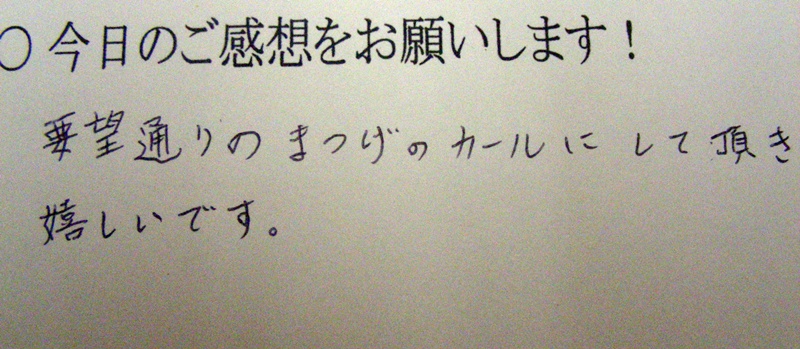 ○今日のご感想をお願いします！
要望通りのまつげのカールにして頂き
嬉しいです。